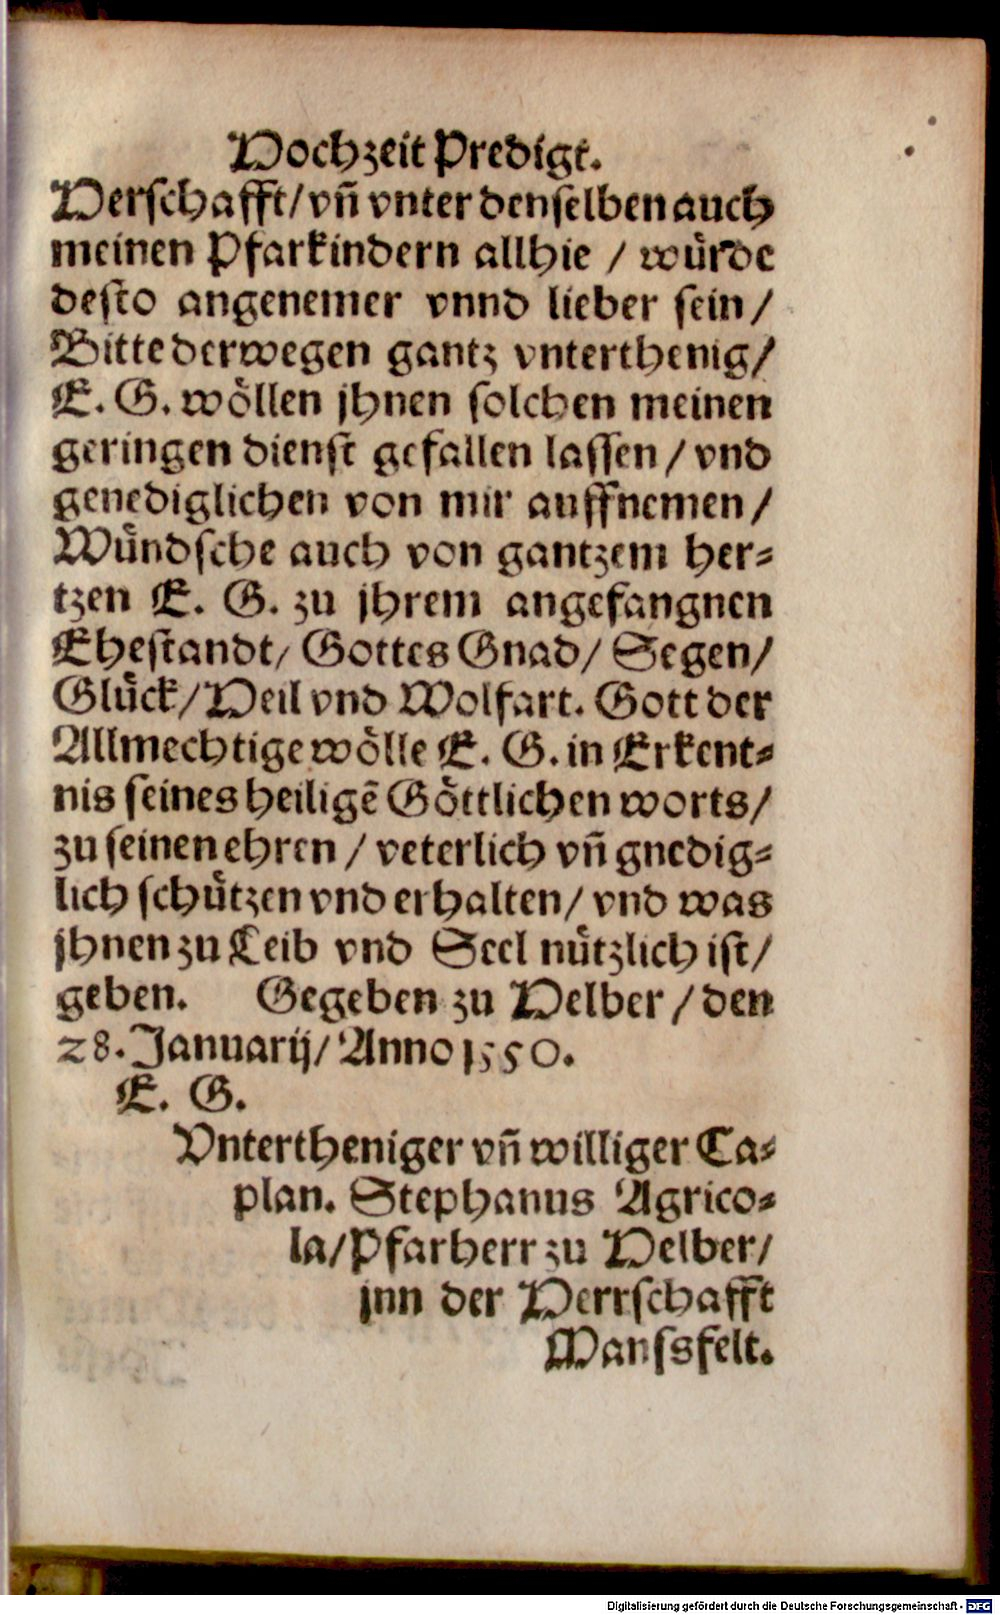 Hochzeit Predigt.
Herschafft/ vñ vnter denselben auch
meinen Pfarkindern allhie / würde
desto angenemer vnnd lieber sein /
Bitte derwegen gantz vnterthenig/
E. G. wöllen jhnen solchen meinen
geringen dienst gefallen lassen / vnd
genediglichen von mir auffnemen /
Wündsche auch von gantzem her-
tzen E. G. zu jhrem angefangnen
Ehestandt/ Gottes Gnad/ Segen/
Glück/ Heil vnd Wolfart. Gott der
Allmechtige wölle E. G. in Erkent-
nis seines heiligẽ Göttlichen worts/
zu seinen ehren / veterlich vñ gnedig-
lich schützen vnd erhalten/ vnd was
jhnen zu Leib vnd Seel nützlich ist/
geben. Gegeben zu Helber / den
28. Januarij/ Anno 1550.
E. G.
Vntertheniger vñ williger Ca-
plan. Stephanus Agrico-
la/ Pfarherr zu Helber/
jnn der Herrschafft
Manssfelt.
Digitalisierung gefördert durch die Deutsche Forschungsgemeinschaft - DFG